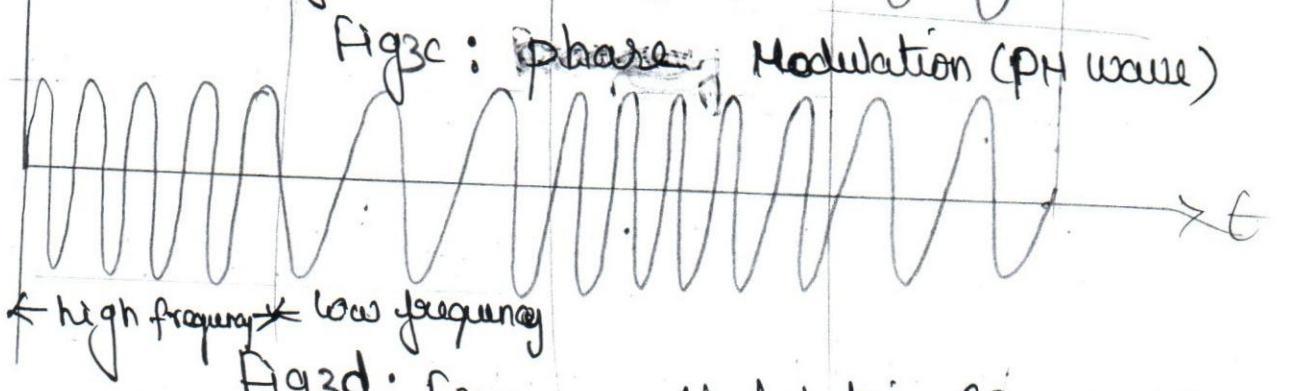 Fig3c : phase Modulation (PM wave)
t
high frequency low frequency
Fig3d :